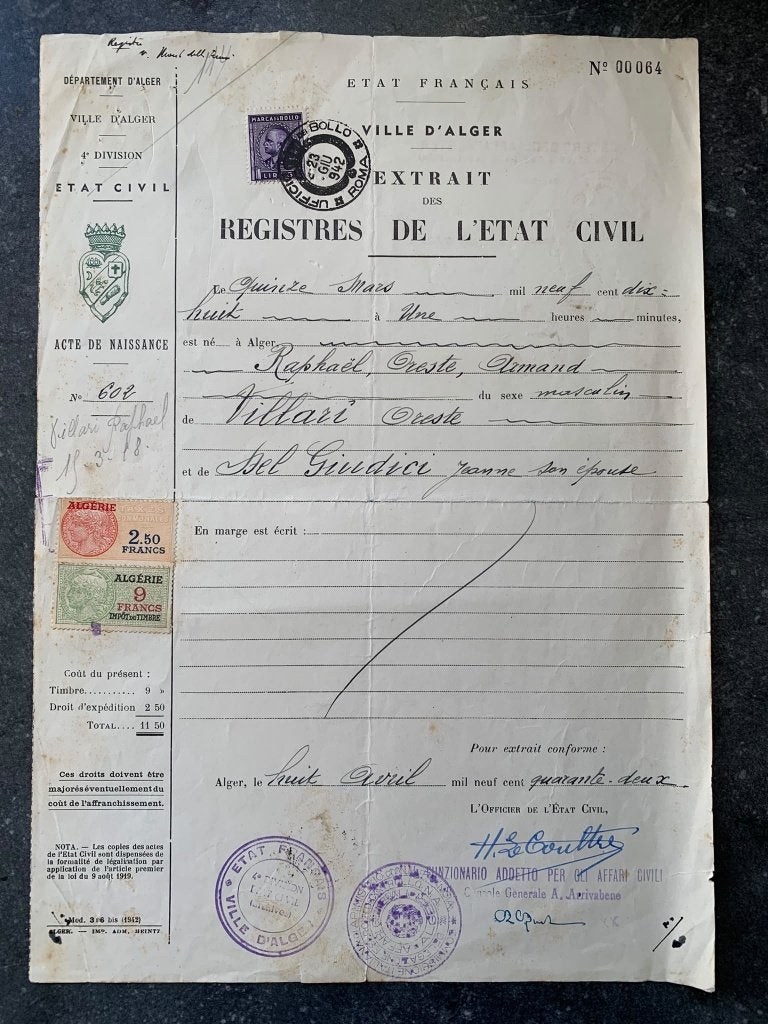 Registre
DÉPARTEMENT D'ALGER
VILLE D'ALGER
4e DIVISION
ETAT CIVIL
ACTE DE NAISSANCE
No 602
Villari Raphael
15. 3. 18.
ALGÉRIE
2.50
FRANCS
ALGÉRIE
9
FRANCS
IMPÔT DU TIMBRE
Coût du présent :
Timbre.......... 9 »
Droit d'expédition 2 50
TOTAL.... 11 50
Ces droits doivent être
majorés éventuellement du
coût de l'affranchissement.
NOTA. — Les copies des actes
de l'Etat Civil sont dispensées de
la formalité de légalisation par
application de l'article premier
de la loi du 9 août 1919.
Mod. 3-6 bis (1942)
ALGER. — IMP. ADM. HEINTZ
No 00064
ETAT FRANÇAIS
VILLE D'ALGER
MARCA DA BOLLO
LIRE
BOLLO
ROMA
23
GIU
942
EXTRAIT
DES
REGISTRES DE L'ETAT CIVIL
Le Quinze Mars mil neuf cent dix-
huit à Une heures minutes,
est né à Alger
Raphaël, Oreste, Armand
du sexe masculin
de Villari Oreste
et de Del Giudici Jeanne son épouse
En marge est écrit :
Pour extrait conforme :
Alger, le huit Avril mil neuf cent quarante-deux.
L'OFFICIER DE L'ÉTAT CIVIL,
H. Le Couttre
FUNZIONARIO ADDETTO PER GLI AFFARI CIVILI
Console Generale A. Arrivabene
ETAT FRANÇAIS
4e DIVISION
ETAT CIVIL
(Archives)
VILLE D'ALGER